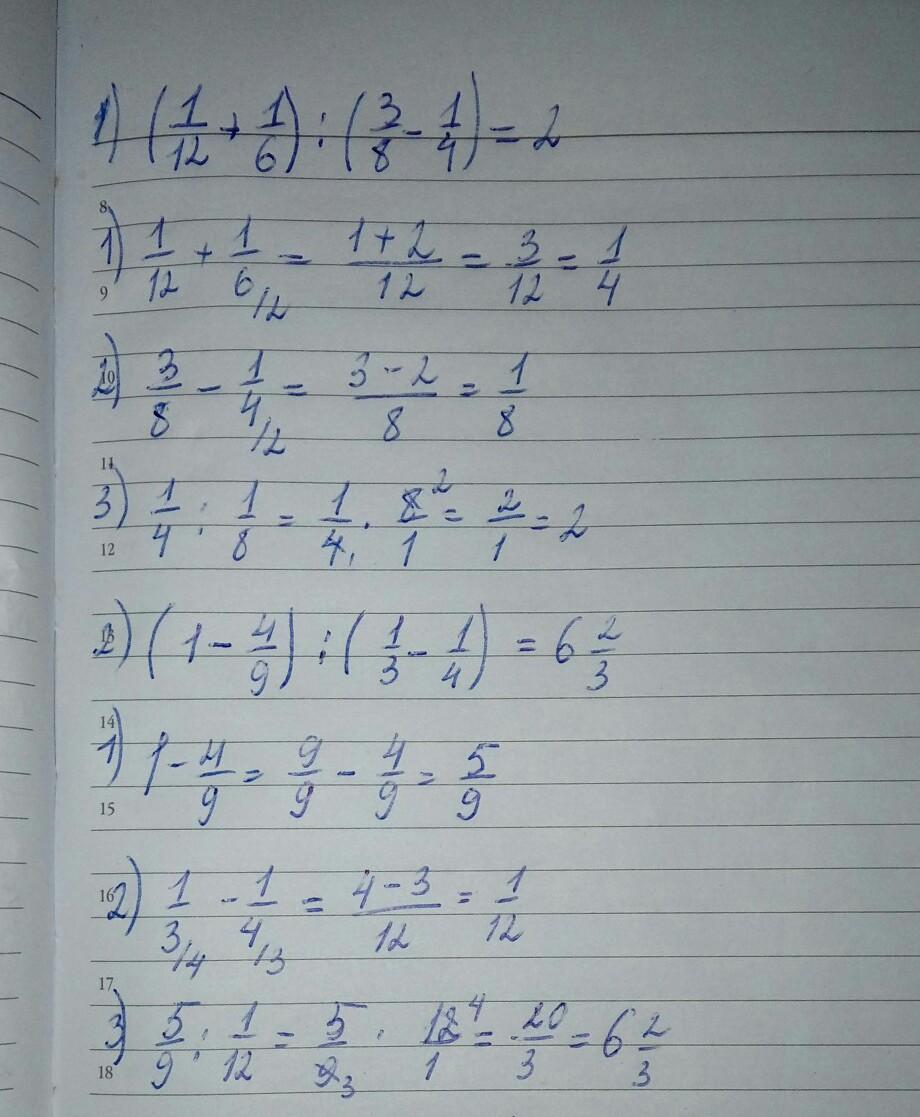 1) (1/12 + 1/6) : (3/8 - 1/4) = 2
8
1) 1/12 + 1/6 /2 = (1+2)/12 = 3/12 = 1/4
9
2) 3/8 - 1/4 /2 = (3-2)/8 = 1/8
10
11
3) 1/4 : 1/8 = 1/4 1 · 8 2/1 = 2/1 = 2
12
2) (1 - 4/9) : (1/3 - 1/4) = 6 2/3
13
14
1) 1 - 4/9 = 9/9 - 4/9 = 5/9
15
2) 1/3 /4 - 1/4 /3 = (4-3)/12 = 1/12
16
17
3) 5/9 : 1/12 = 5/9 3 · 12 4/1 = 20/3 = 6 2/3
18